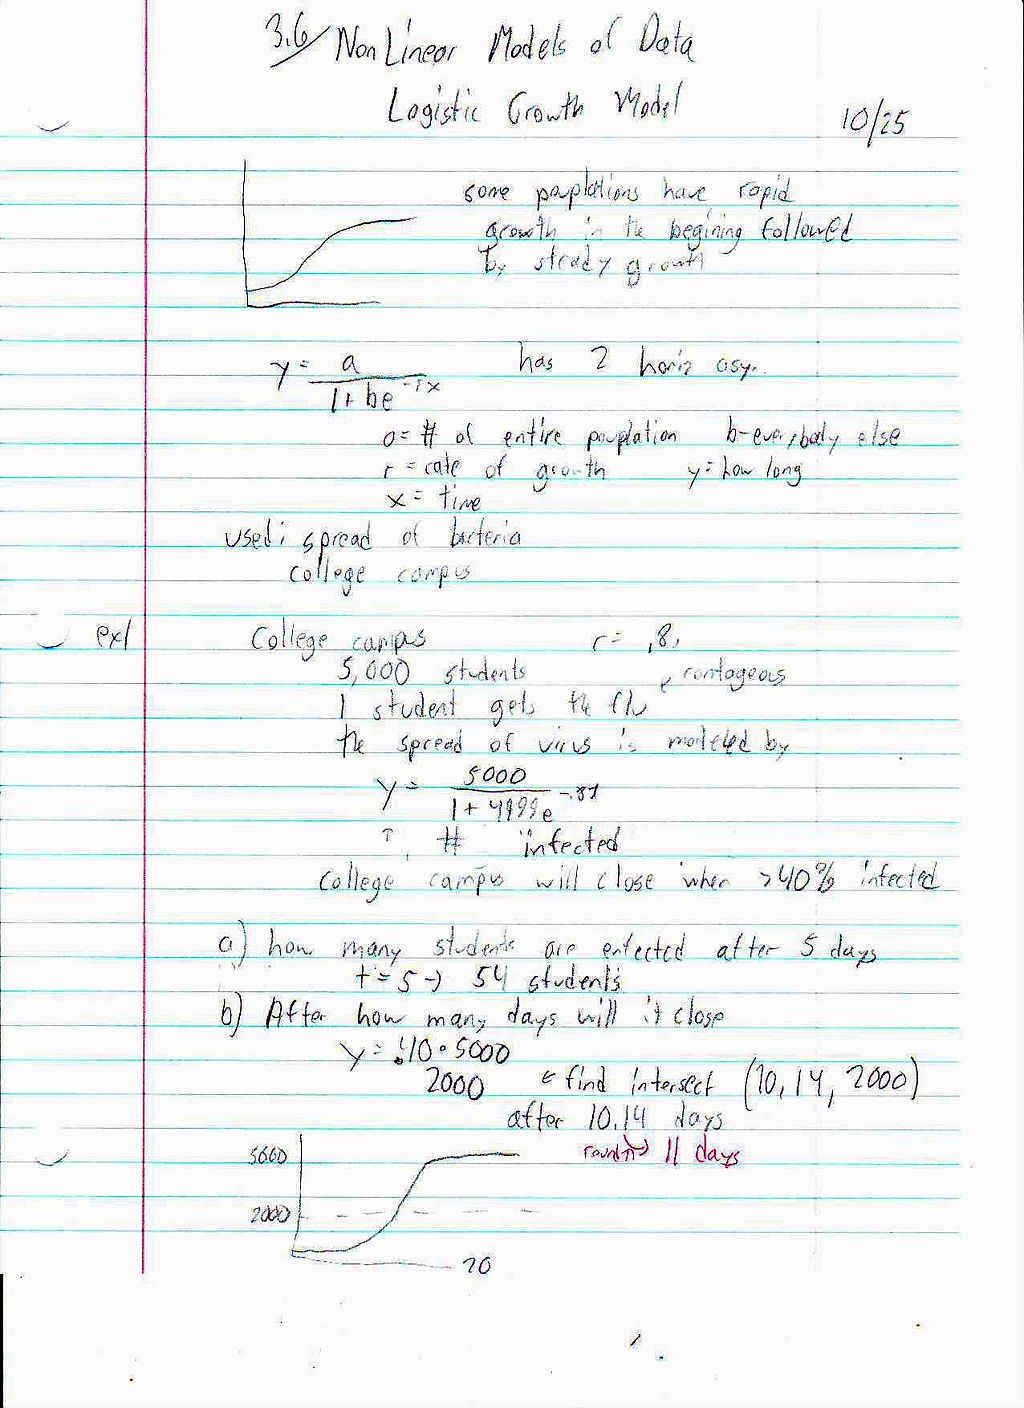 3.6/ Non Linear Models of Data
Logistic Growth Model
10/25
some pouplations have rapid
growth in the begining followed
by steady growth
y = a / 1 + be^-rx has 2 horiz asy.
a = # of entire pouplation b-everybody else
r = rate of growth y = how long
x = time
used: spread of bacteria
college campus
ex1 College campus r = .8,
5,000 students contageous
1 student gets the flu
the spread of virus is modeled by
y = 5000 / 1 + 4999e^-.8t
↑ # infected
College campus will close when >40% infected
a) how many students are enfected after 5 days
t = 5 → 54 students
b) After how many days will it close
y = .40 • 5000
2000 ← find intersect (10,14, 2000)
after 10.14 days
5000 round → 11 days
2000
20